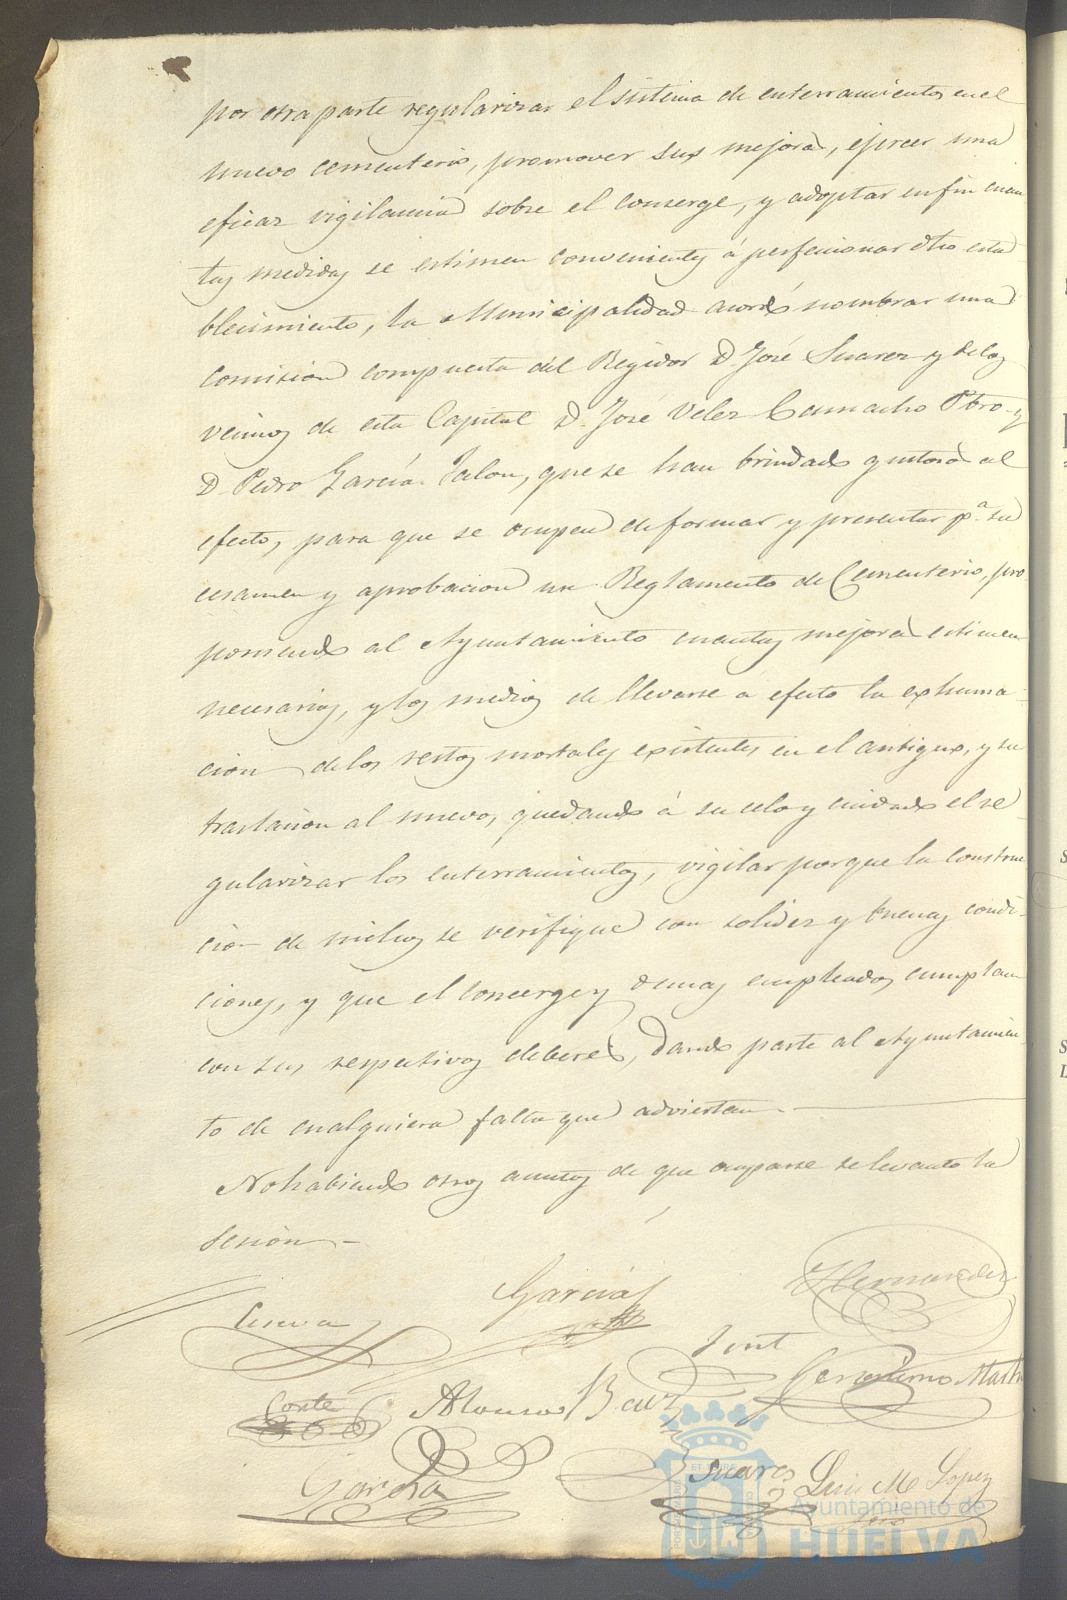 por otra parte regularizar el sistema de enterramientos en el
nuevo cementerio, promover sus mejoras, ejercer una
eficaz vigilancia sobre el conserge, y adoptar en fin cuan
tas medidas se estimen convenientes á perfecionar dho esta
blecimiento, la Municipalidad acordó nombrar una
comision compuesta del Regidor D. José Suarez y de los
vecinos de esta Capital D. José Velez Camacho Pbro. y
D. Pedro García Jalon, que se han brindado gustosos al
efecto, para que se ocupen de formar y presentar pa. su
ecsamen y aprobacion un Reglamento de Cementerio, pro
poniendo al Ayuntamiento cuantas mejoras estimen
necesarias, y los medios de llevarse á efecto la exhuma-
cion de los restos mortales existentes en el antiguo, y su
traslacion al nuevo, quedando á su celo y cuidado el re-
gularizar los enterramientos, vigilar porque la construc
cion de nichos se verifique con solidez y buenas condi-
ciones, y que el concerge y demas empleados cumplan
con sus respectivos deberes, dando parte al Ayuntamien-
to de cualquiera falta que adviertan.
No habiendo otros asuntos de que ocuparse se levanto la
sesion.
García Hernandez
Cueva
Gerónimo Martin
Conte Alonso Baez
García Suares Luis M. Lopez
Ayuntamiento de
HUELVA